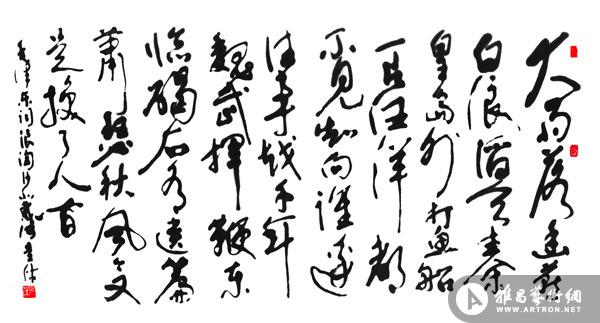 大雨落幽燕
白浪滔天秦
皇岛外打鱼船
一片汪洋都
不见知向谁边
往事越千年
魏武挥鞭东
临碣石有遗篇
萧瑟秋风今又
是换了人间
毛泽东词浪淘沙北戴河
雅昌藝術網
WWW.ARTRON.NET